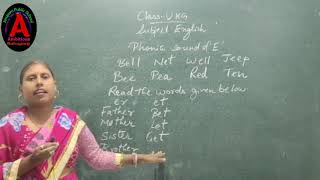 A
Ambitious
Class-UKG
Subject English
Phonic sound of 'E'
Bell Net Well Jeep
Bee Pea Red Ten
Read the words given below
er et
Father Bet
Mother Let
Sister Get